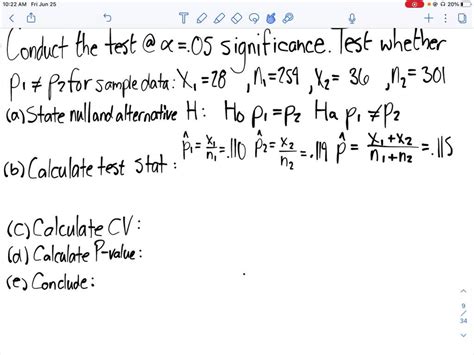 10:22 AM Fri Jun 25
20%
Conduct the test @ α=.05 significance. Test whether
p₁ ≠ p₂ for sample data: X₁=28, n₁=254, X₂=36, n₂=301
(a) State null and alternative H: H₀ p₁=p₂ Ha p₁≠p₂
(b) Calculate test stat: p̂₁=x₁/n₁=.110 p̂₂=x₂/n₂=.119 p̂=x₁+x₂/n₁+n₂=.115
(c) Calculate CV:
(d) Calculate P-value:
(e) Conclude:
9
34